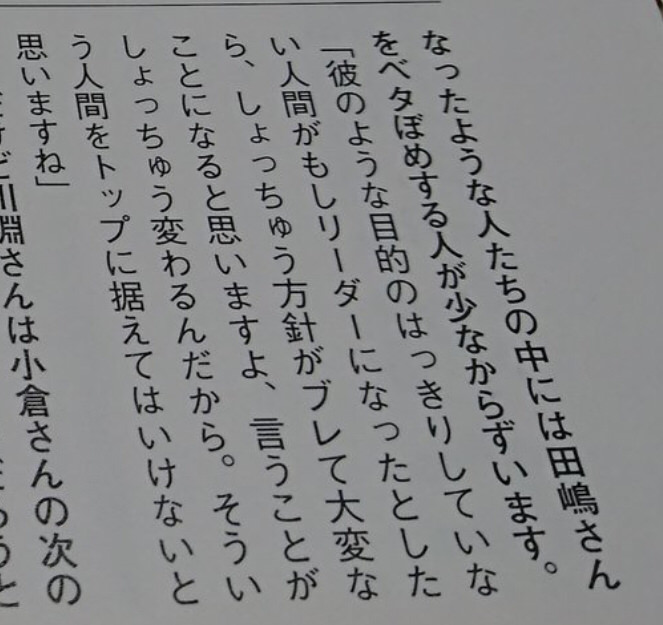 なったような人たちの中には田嶋さん
をベタぼめする人が少なからずいます。
「彼のような目的のはっきりしていな
い人間がもしリーダーになったとした
ら、しょっちゅう方針がブレて大変な
ことになると思いますよ、言うことが
しょっちゅう変わるんだから。そうい
う人間をトップに据えてはいけないと
思いますね」
川淵さんは小倉さんの次の